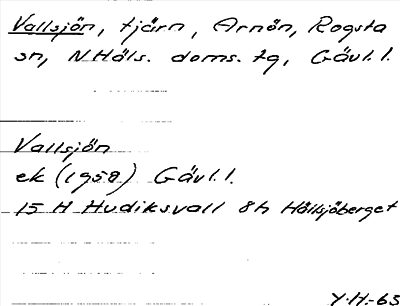 Vallsjön, tjärn, Arnön, Rogsta
sn, N Häls. doms. tg, Gävl. l.
Vallsjön
ek (1958) Gävl. l.
15 H Hudiksvall 8h Hölksjöberget
Y.H.-65